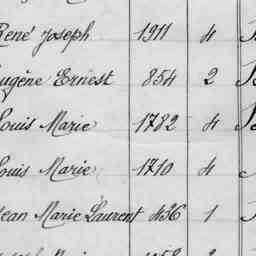 René Joseph 1911 4
Eugène Ernest 854 2
Louis Marie 1782 4
Louis Marie 1710 4
Jean Marie Laurent 436 1